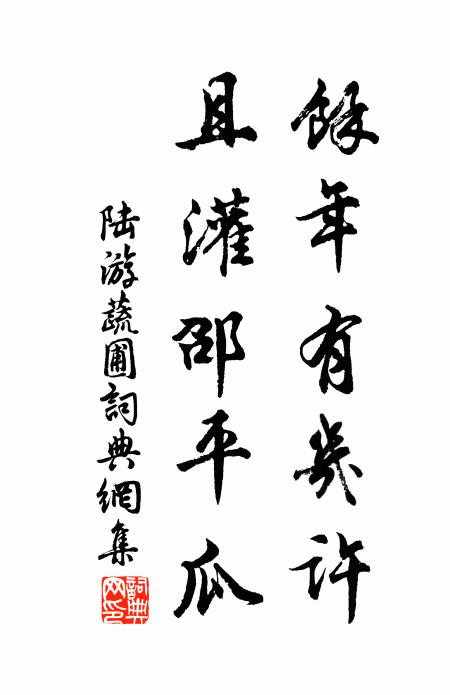 餘年有幾許
且灌邵平瓜
陸游蔬圃詞典網集
詞典網印